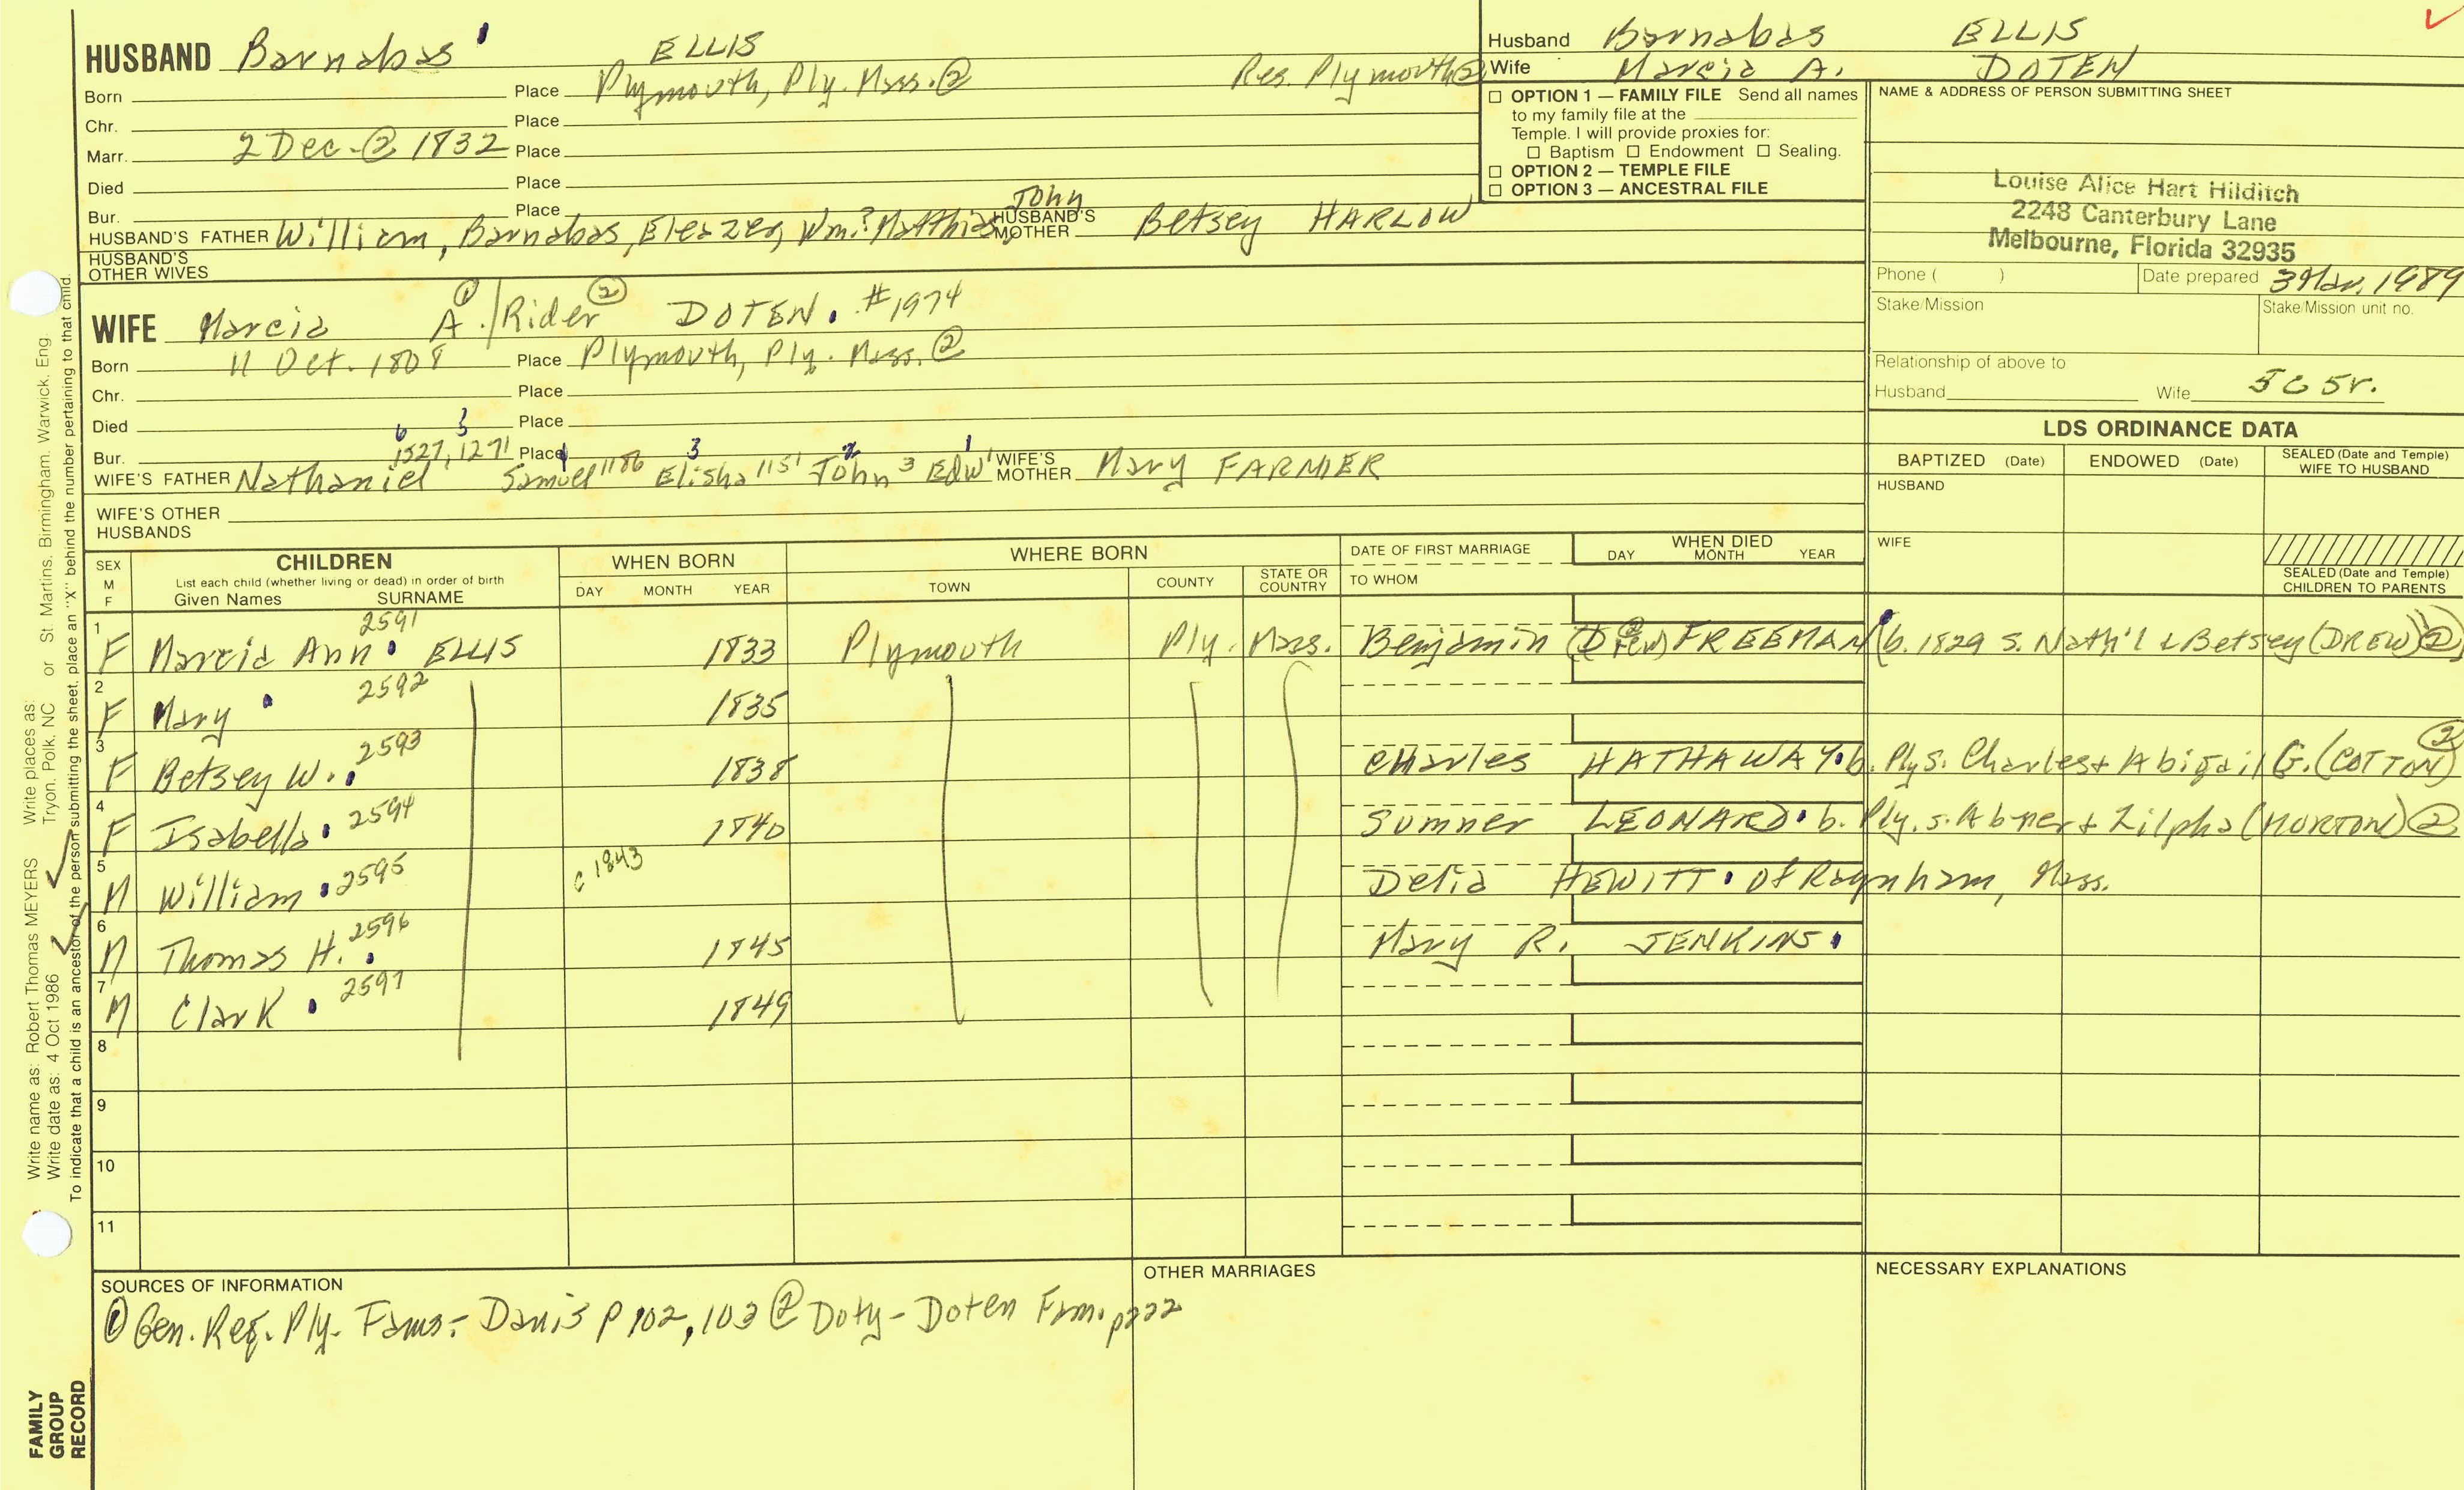 HUSBAND Barnabas ELLIS
Born Place Plymouth, Ply. Mass. ② Res. Plymouth ②
Chr. Place
Marr. 2 Dec. ② 1832 Place
Died Place
Bur. Place
HUSBAND'S FATHER William, Barnabas, Eleazer, Wm.? Matthias, John HUSBAND'S MOTHER Betsey HARLOW
HUSBAND'S OTHER WIVES
Husband Barnabas ELLIS
Wife Marcia A. DOTEN
☐ OPTION 1 — FAMILY FILE Send all names
to my family file at the
Temple. I will provide proxies for:
☐ Baptism ☐ Endowment ☐ Sealing.
☐ OPTION 2 — TEMPLE FILE
☐ OPTION 3 — ANCESTRAL FILE
NAME & ADDRESS OF PERSON SUBMITTING SHEET
Louise Alice Hart Hilditch
2248 Canterbury Lane
Melbourne, Florida 32935
Phone ( ) Date prepared 3 Mar. 1989
Stake/Mission Stake/Mission unit no.
Relationship of above to
Husband Wife 5C 5r.
WIFE Marcia A.①/Rider② DOTEN. #1974
Born 11 Oct. 1808 Place Plymouth, Ply. Mass. ②
Chr. Place
Died Place
6 3
Bur. 1527, 1271 Place 3 2 1
WIFE'S FATHER Nathaniel Samuel 1186 Elisha 1151 John 3 Edw 1 WIFE'S MOTHER Mary FARMER
WIFE'S OTHER
HUSBANDS
LDS ORDINANCE DATA
BAPTIZED (Date) ENDOWED (Date) SEALED (Date and Temple) WIFE TO HUSBAND
HUSBAND
WIFE
SEALED (Date and Temple)
CHILDREN TO PARENTS
SEX M F CHILDREN WHEN BORN WHERE BORN DATE OF FIRST MARRIAGE WHEN DIED
List each child (whether living or dead) in order of birth
Given Names SURNAME DAY MONTH YEAR TOWN COUNTY STATE OR COUNTRY TO WHOM DAY MONTH YEAR
1 F Marcia Ann 2591 ELLIS 1833 Plymouth Ply. Mass. Benjamin (Drew) ② FREEMAN (b. 1829 s. Nath'l & Betsey (DREW) ②)
2 F Mary 2592 1835
3 F Betsey W. 2593 1838 Charles HATHAWAY b. Ply s. Charles + Abigail G. (COTTON) ②
4 F Isabella 2594 1840 Sumner LEONARD b. Ply. s. Abner + Zilpha (MORTON) ②
5 M William 2595 c 1843 Delia HEWITT of Raynham, Mass.
6 M Thomas H. 2596 1845 Mary R. JENKINS
7 M Clark 2597 1849
8
9
10
11
SOURCES OF INFORMATION
① Gen. Reg. Ply. Fams - Davis p 102, 103 ② Doty-Doten Fam. p222
OTHER MARRIAGES
NECESSARY EXPLANATIONS
Write name as: Robert Thomas MEYERS Write places as: Tryon, Polk, NC or St. Martins, Birmingham, Warwick, Eng.
Write date as: 4 Oct 1986
To indicate that a child is an ancestor of the person submitting the sheet, place an "X" behind the number pertaining to that child.
FAMILY
GROUP
RECORD